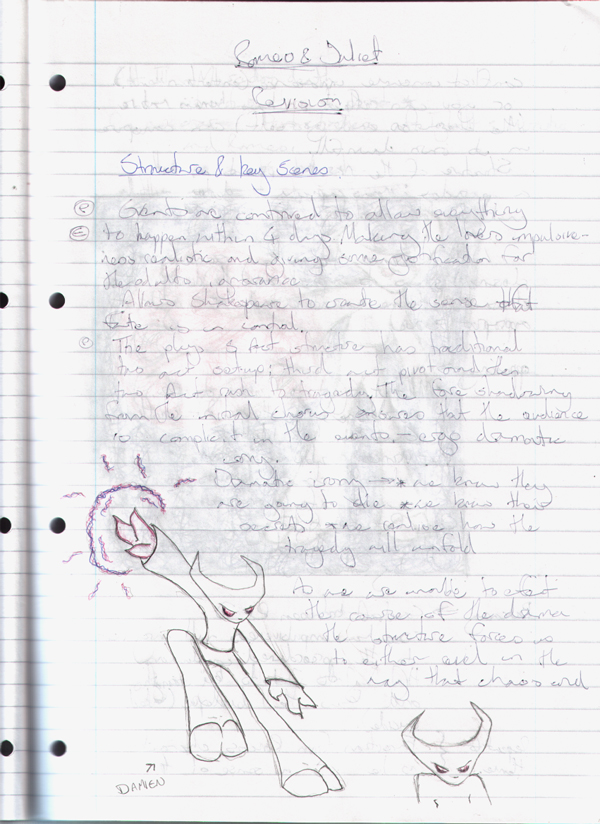 Romeo & Juliet
Revision
Structure & key scenes
Events are contrived to allow everything
to happen within 4 days. Making the lovers impulsive-
ness realistic and giving some justification for
the adults ignorance
Allows Shakespeare to create the sense that
fate is in control.
The plays 5 Act structure has traditional
two act setup; third act pivot and then
two Act rush to tragedy. The fore shadowing
from the chorus assures that the audience
is complicit in the events – ergo dramatic
irony.
Dramatic irony → * we know they
are going to die * we know their
secrets * we realise how the
tragedy will unfold
to we are unable to effect
the course of the drama
the structure forces us
to either revel in the
way that chaos and
DAMIEN